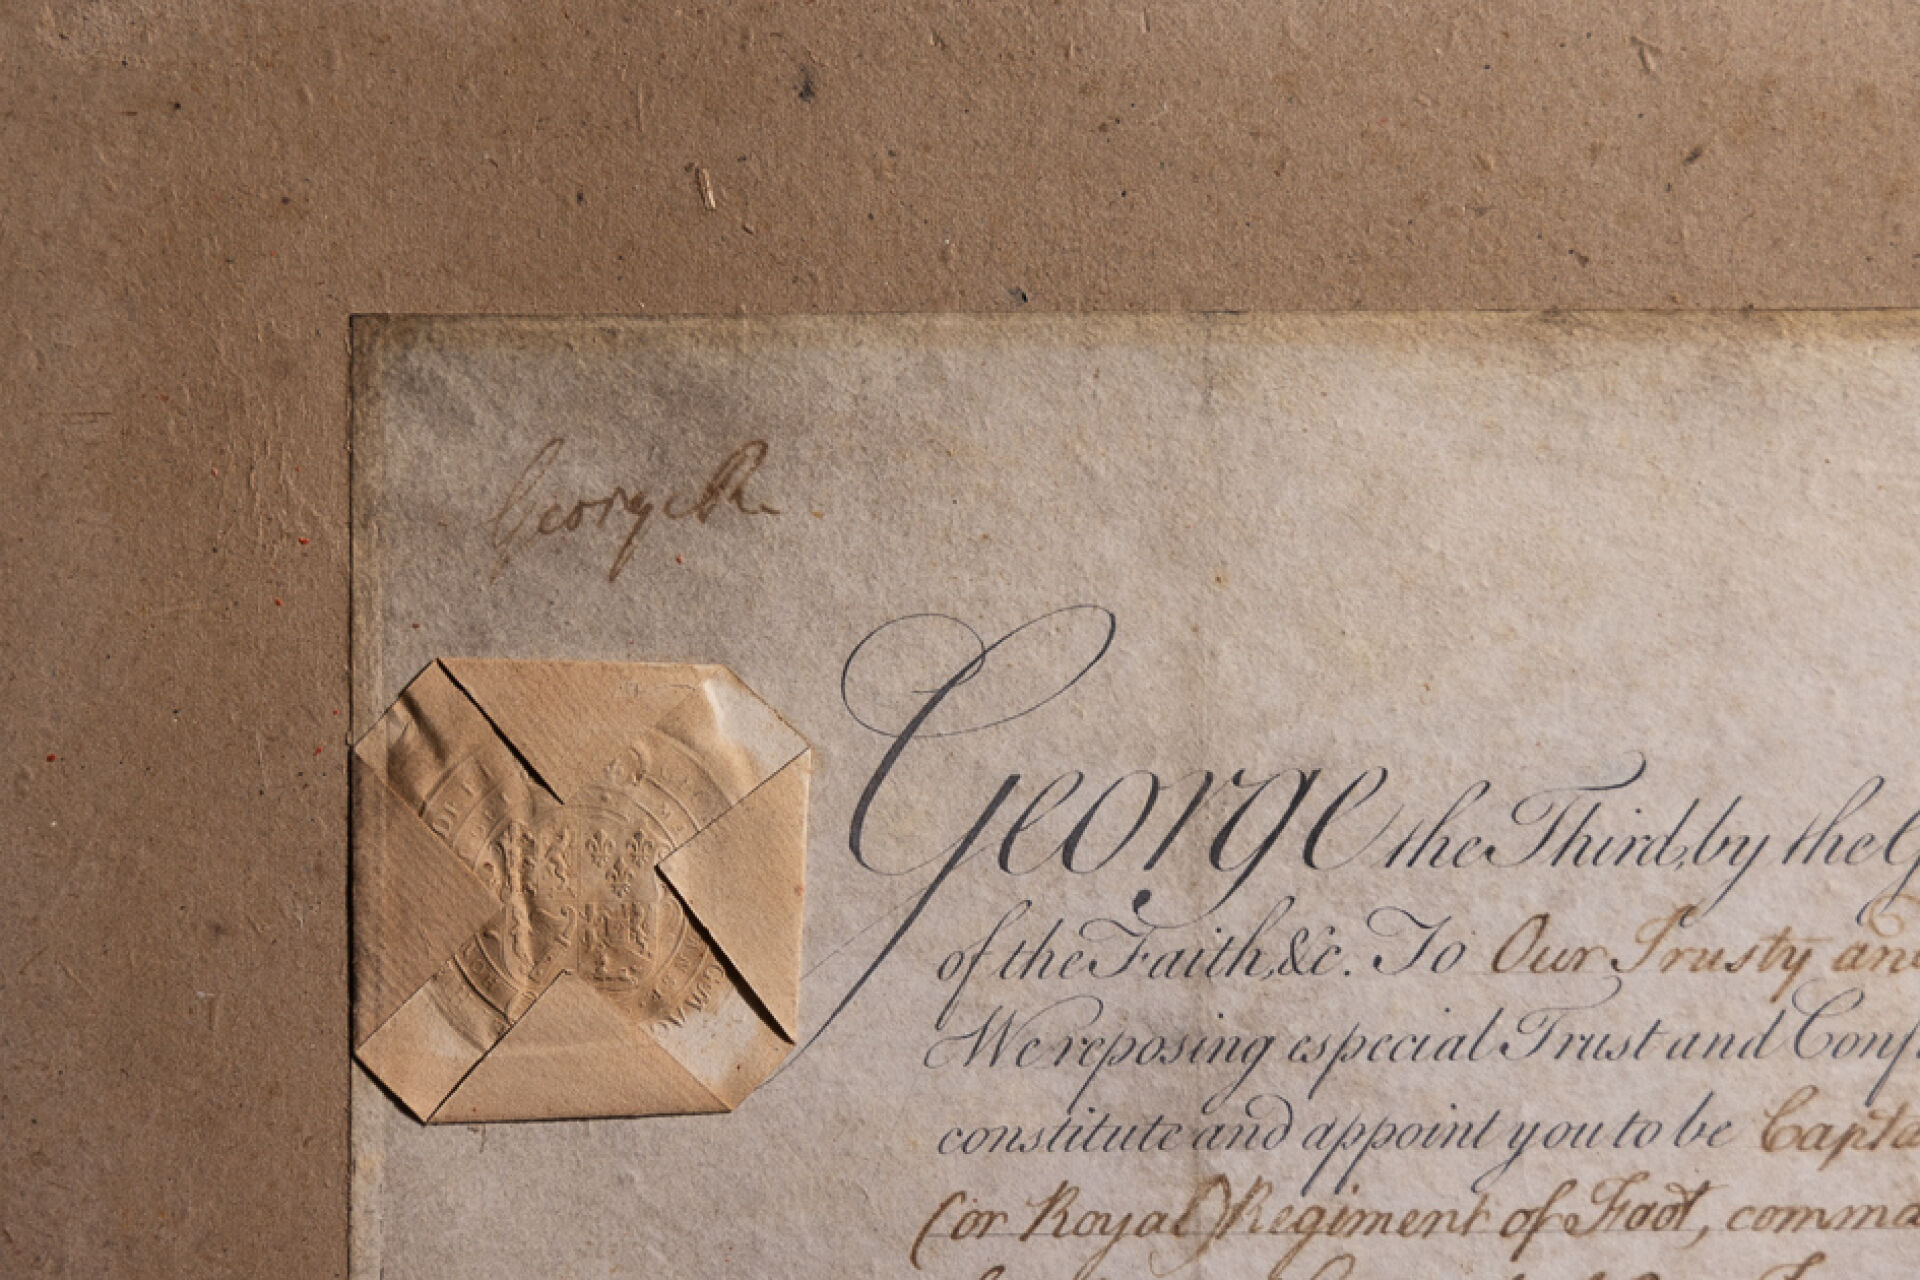 George R
George the Third, by the G
of the Faith, &c. To Our Trusty and
We reposing especial Trust and Conf
constitute and appoint you to be Capta
(or Royal) Regiment of Foot, comma